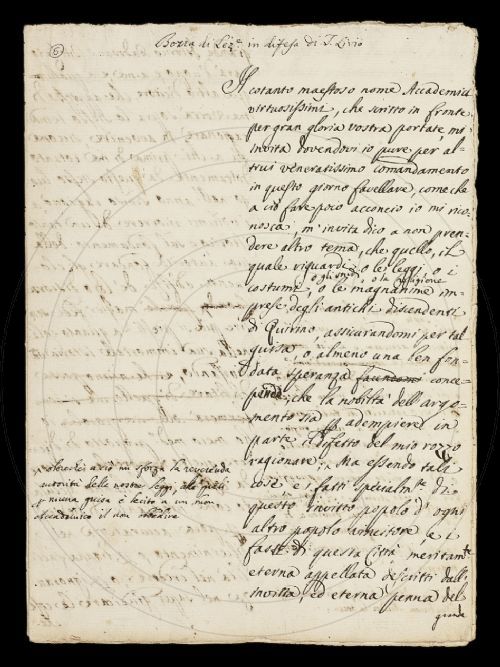 6
Bozza di Lez.e in difesa di T. Livio
Il cotanto maestoso nome Accademici
virtuosissimi, che scritto in fronte
per gran gloria vostra portate, mi
invita dovendovi io pure per al-
trui veneratissimo comandamento
in questo giorno favellare, come che
a ciò fare poco acconcio io mi rico-
nosca, m'invita dico a non pren-
dere altro tema, che quello, il
quale riguardi o le leggi, o i
o gli usi, o la religione
costumi o le magnanime im-
prese degli antichi discendenti
di Quirino, assicurandomi per tal
guisa, o almeno una ben fon-
data speranza facendomi conce-
pire, che la nobiltà dell'argo-
mento sia per adempiere in
parte il difetto del mio rozzo
ragionare. Ma essendo tali
cose, e i fatti specialm.te di
questo invitto popolo d'ogni
altro popolo vincitore e i
fasti di questa Città meritam.te
eterna appellata descritti dall'
invitta, ed eterna penna del
grande
a ciò mi sforza la reverenda
autorità delle nostre leggi, alle quali
niuna guisa è lecito a un buon
Accademico il non obbedire